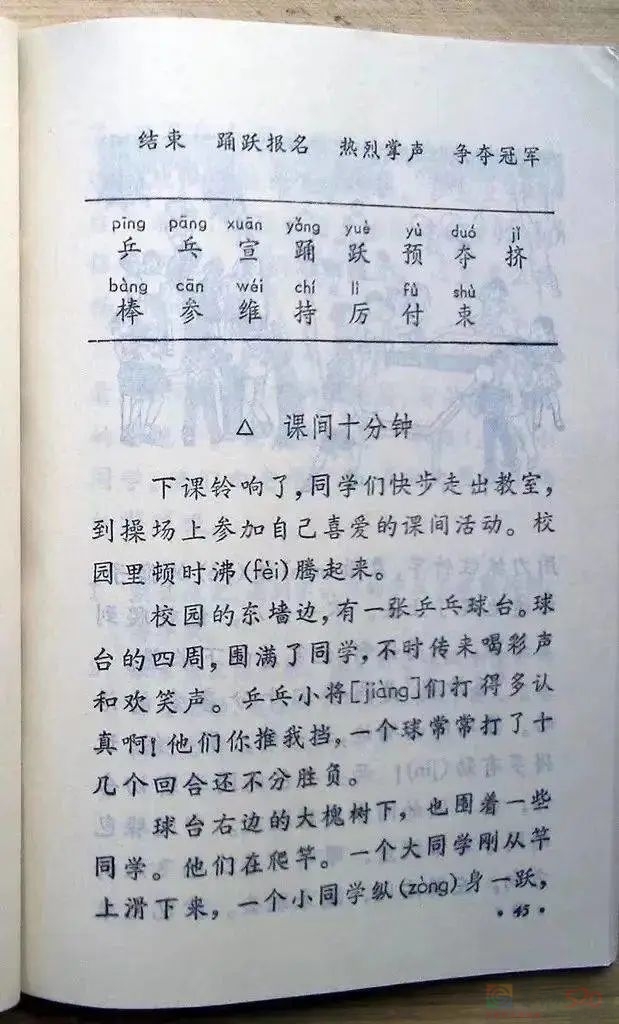 结束 踊跃报名 热烈掌声 争夺冠军
pīng pāng xuān yǒng yuè yù duó jǐ
乒 乓 宣 踊 跃 预 夺 挤
bàng cān wéi chí lì fù shù
棒 参 维 持 厉 付 束
△ 课间十分钟
下课铃响了,同学们快步走出教室,
到操场上参加自己喜爱的课间活动。校
园里顿时沸(fèi)腾起来。
校园的东墙边,有一张乒乓球台。球
台的四周,围满了同学,不时传来喝彩声
和欢笑声。乒乓小将[jiàng]们打得多认
真啊!他们你推我挡,一个球常常打了十
几个回合还不分胜负。
球台右边的大槐树下,也围着一些
同学。他们在爬竿。一个大同学刚从竿
上滑下来,一个小同学纵(zòng)身一跃,
• 45 •